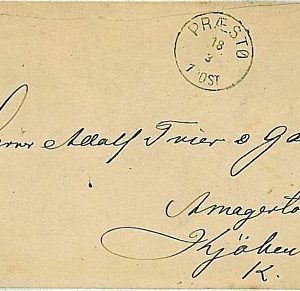 PRÆSTØ
18
3
7 POST
Herrer Adolf Trier & Go
Amagerto
Kjøben
K.